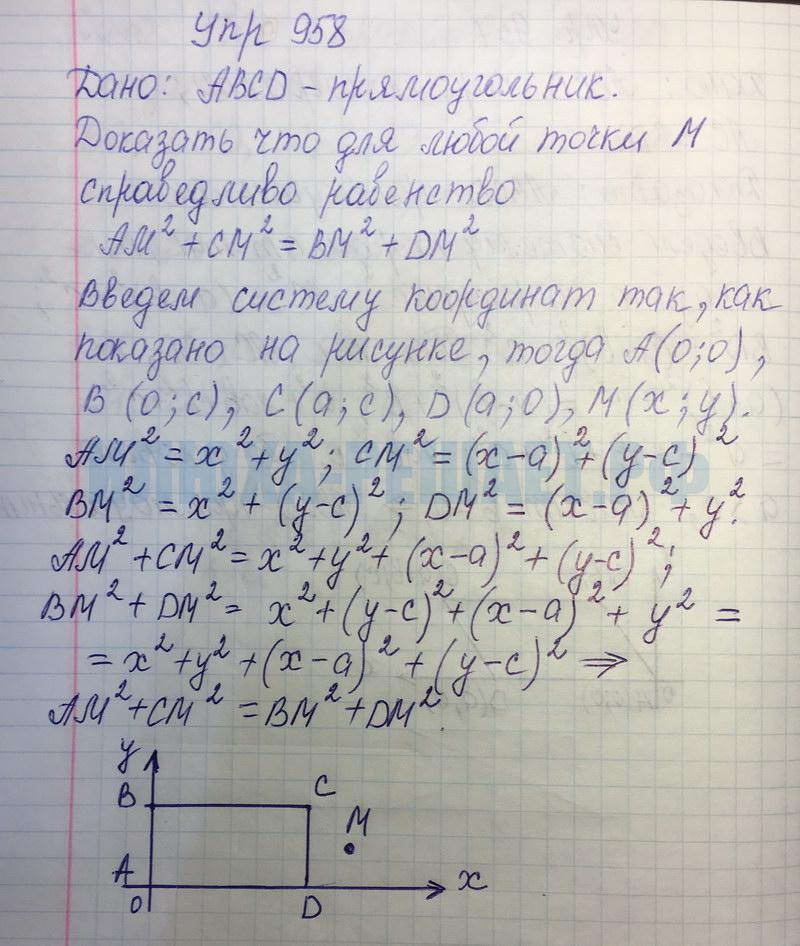 Упр 958
Дано: ABCD - прямоугольник.
Доказать что для любой точки M
справедливо равенство
AM² + CM² = BM² + DM²
Введем систему координат так, как
показано на рисунке, тогда A(0;0),
B (0;c), C(a;c), D(a;0), M(x;y).
AM² = x² + y²; CM² = (x-a)² + (y-c)²
BM² = x² + (y-c)²; DM² = (x-a)² + y².
AM² + CM² = x² + y² + (x-a)² + (y-c)²;
BM² + DM² = x² + (y-c)² + (x-a)² + y² =
= x² + y² + (x-a)² + (y-c)² ⇒
AM² + CM² = BM² + DM².
y
B
C
M
A
x
0
D